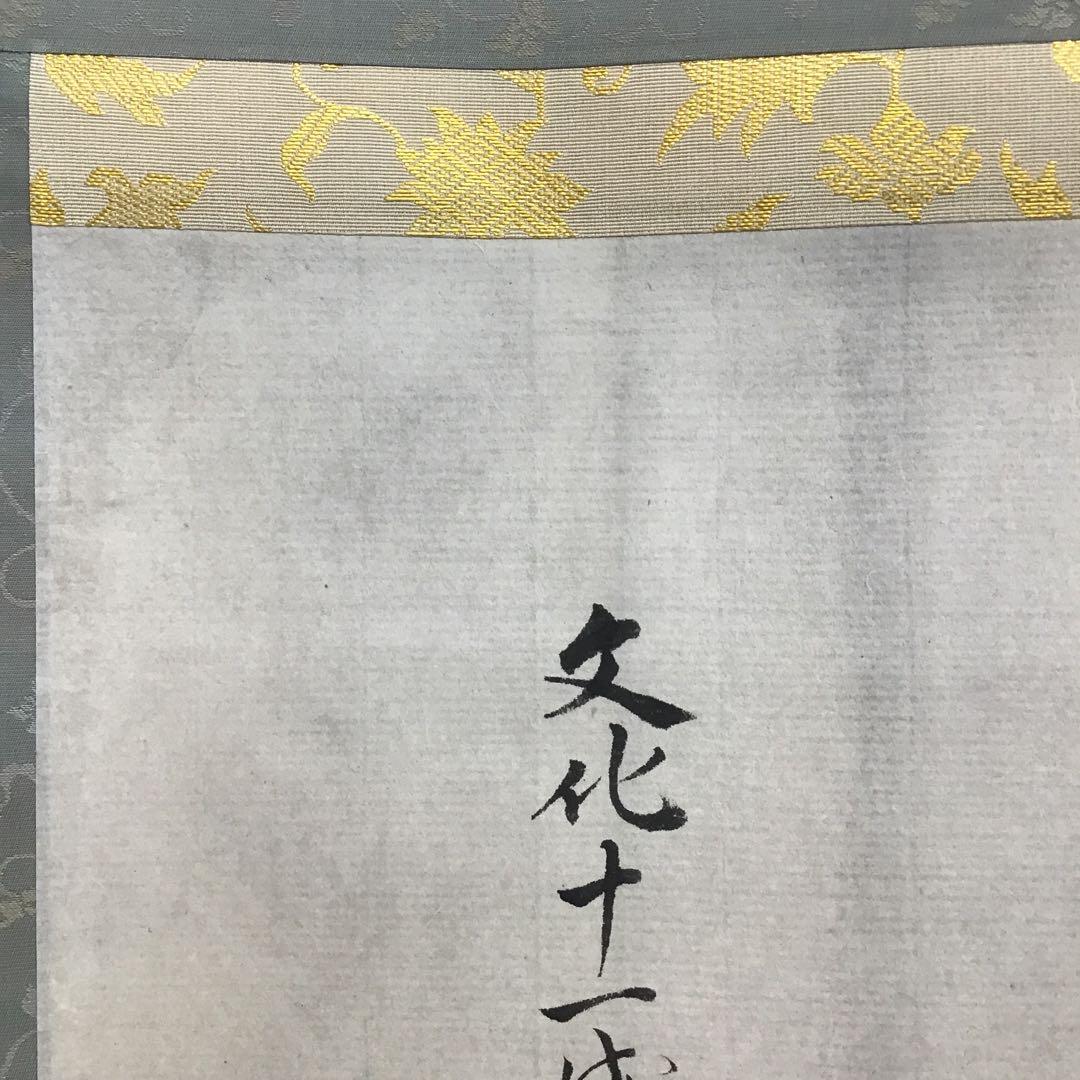 文化十一